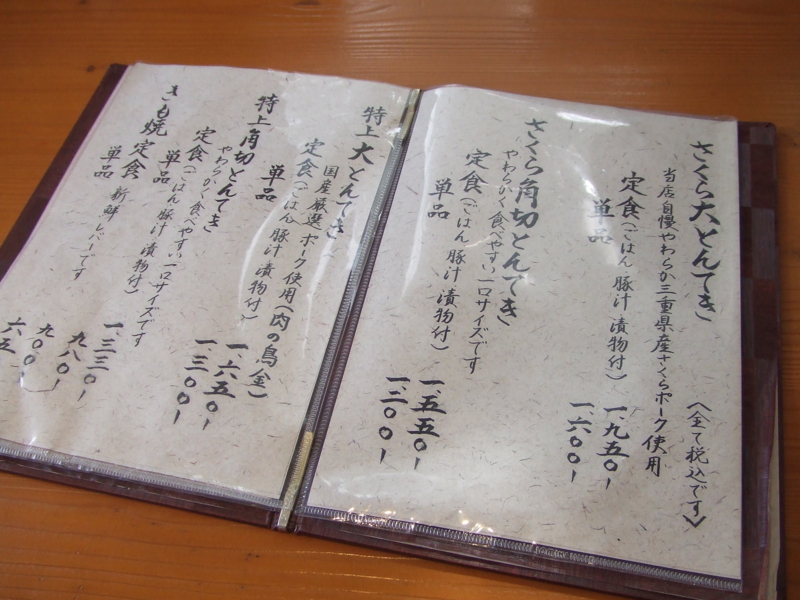 さくら大とんてき 〈全て税込です〉
当店自慢やわらか三重県産さくらポーク使用
定食(ごはん 豚汁 漬物付) 一、九五〇-
単品 一、六〇〇-
さくら角切とんてき
やわらかく食べやすい一口サイズです
定食(ごはん 豚汁 漬物付) 一、五五〇-
単品 一、二〇〇-
特上大とんてき
国産厳選ポーク使用(肉の鳥金)
定食(ごはん 豚汁 漬物付) 一、六五〇-
単品 一、三〇〇-
特上角切とんてき
やわらかく食べやすい一口サイズです
定食(ごはん 豚汁 漬物付) 一、三三〇-
単品 九八〇-
きも焼 定食 九〇〇-
新鮮レバーです
単品 六五